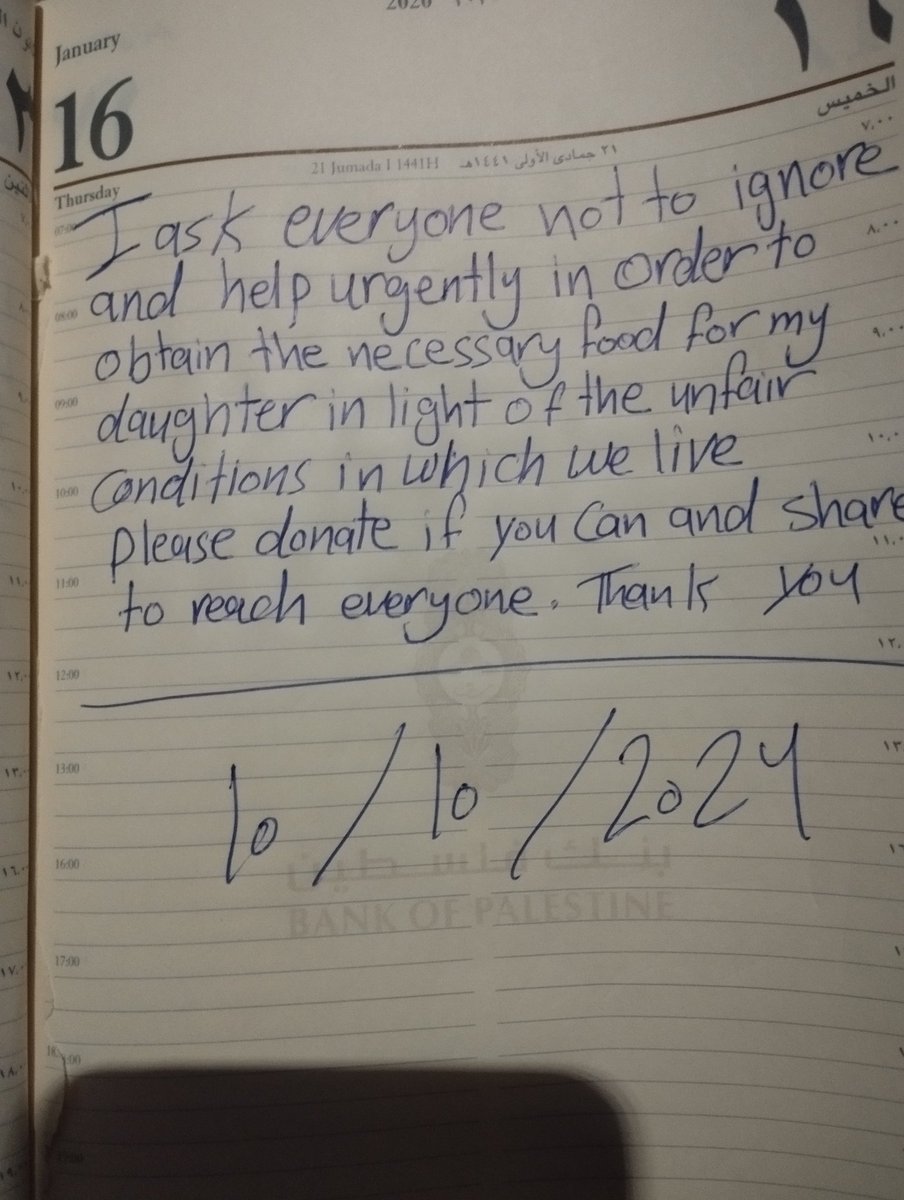 January
16
Thursday
الخميس
21 Jumada I 1441H ٢١ جمادى الأولى ١٤٤١هـ
I ask everyone not to ignore
and help urgently in order to
obtain the necessary food for my
daughter in light of the unfair
conditions in which we live
please donate if you can and share
to reach everyone. Thank you
10/10/2024
بنك فلسطين
BANK OF PALESTINE
07:00
08:00
09:00
10:00
11:00
12:00
13:00
16:00
17:00
٧,٠٠
٨,٠٠
٩,٠٠
١٠,٠٠
١١,٠٠